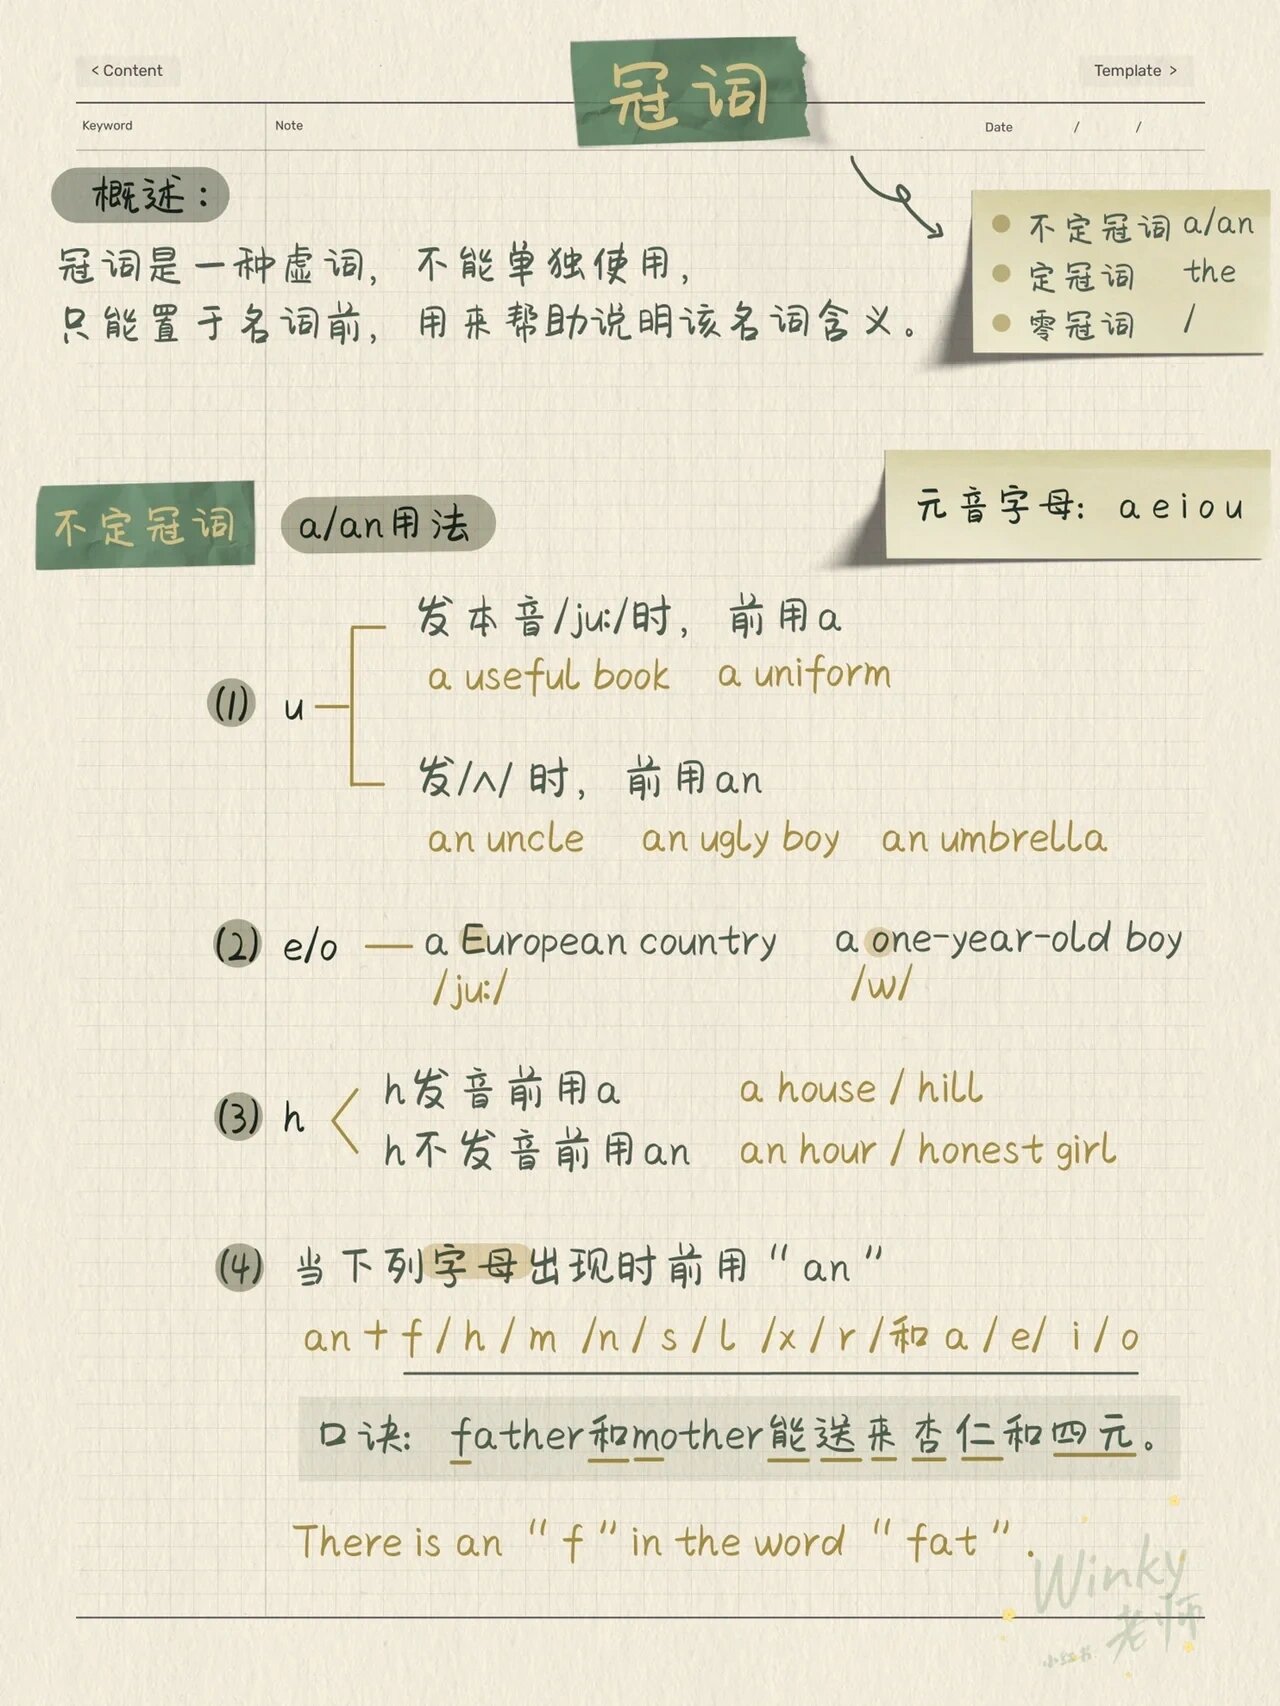 < Content
冠词
Template >
Keyword
Note
Date / /
概述：
冠词是一种虚词，不能单独使用，
只能置于名词前，用来帮助说明该名词含义。
不定冠词 a/an
定冠词 the
零冠词 /
元音字母：a e i o u
不定冠词
a/an用法
(1) u
发本音/ju:/时，前用a
a useful book a uniform
发/ʌ/时，前用an
an uncle an ugly boy an umbrella
(2) e/o — a European country a one-year-old boy
/ju:/ /w/
(3) h
h发音前用a a house / hill
h不发音前用an an hour / honest girl
(4) 当下列字母出现时前用“an”
an + f / h / m / n / s / l / x / r / 和 a / e / i / o
口诀：father和mother能送来杏仁和四元。
There is an “f” in the word “fat”.
Winky
老师
小红书